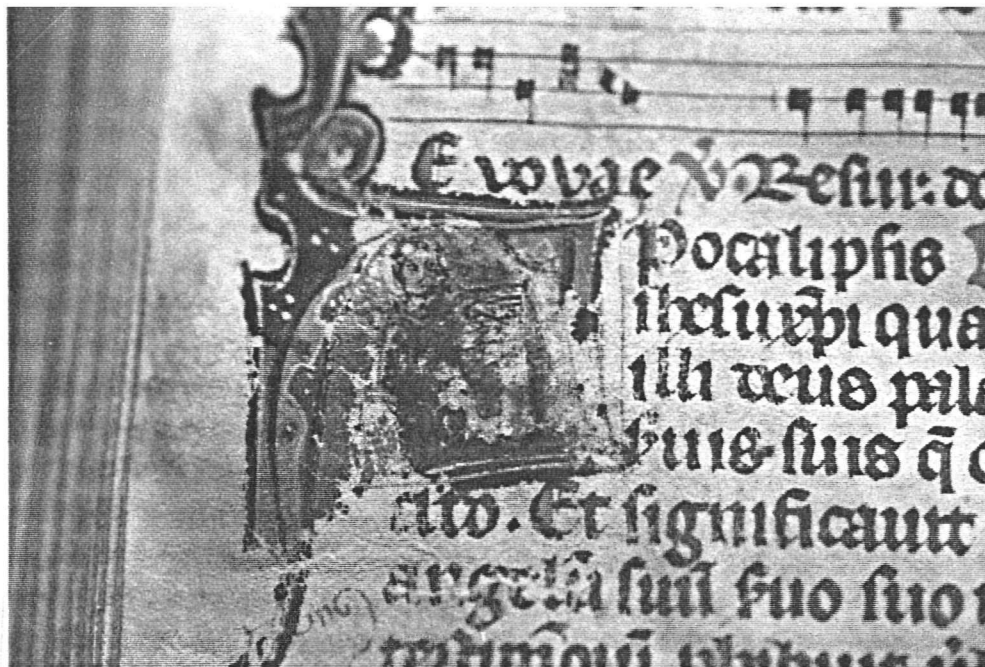 Evovae V̓. Resur: do
Pocalipsis
ihesu xp̄i qua
illi deus pala
s̓uis suis q̄ c
cito. Et significavit
angelū suū s̓uo suo